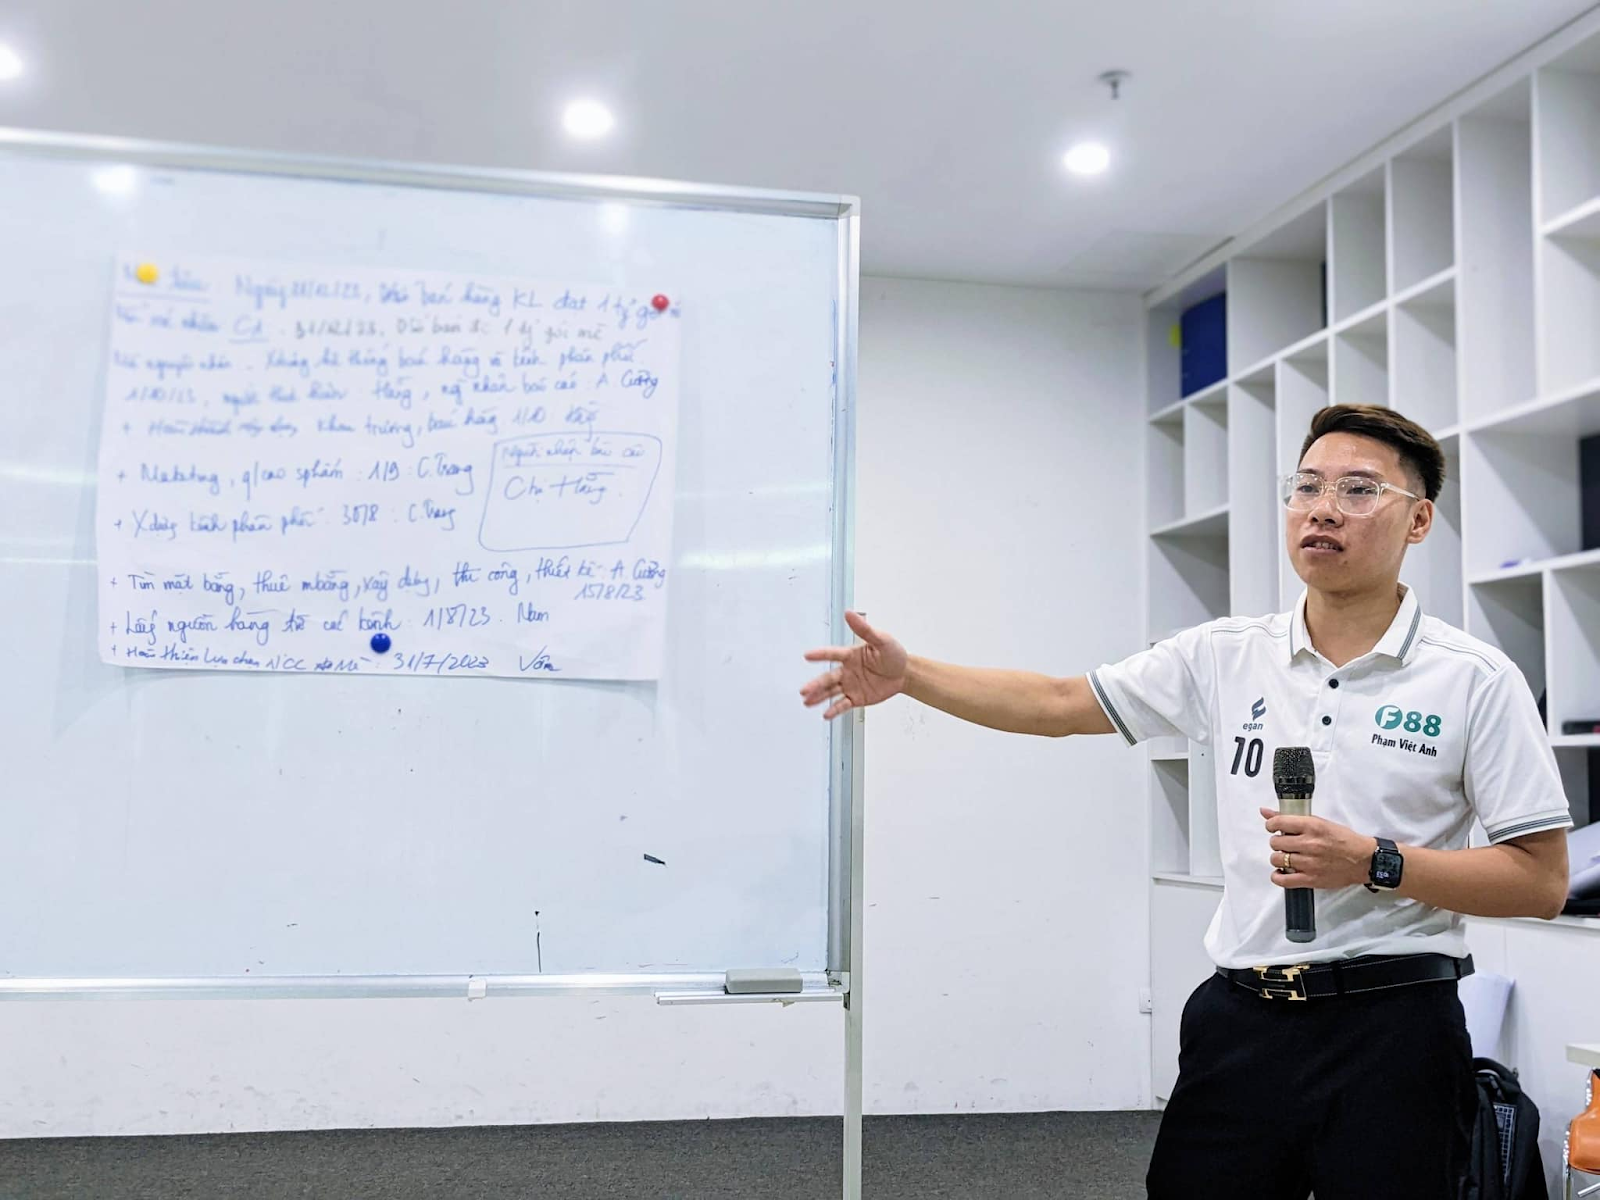 tiêu: Ngày 31/12/23, bán hàng KL đạt 1 tỷ gói mì
C1. 31/12/23. Đã bán đc 1 tỷ gói mì
nguyên nhân. hệ thống bán hàng và kênh phân phối
1/10/23, người thực hiện: Hằng, ng nhận báo cáo A. Cường
+ khai trương, bán hàng 1/10
+ Marketing, q/cáo sphẩm: 1/9: C.Trang
+ Xdựng kênh phân phối: 30/8: C.Trang
Người nhận báo cáo
Chị Hằng.
+ Tìm mặt bằng, thuê mbằng, xây dựng, thi công, thiết kế: A. Cường
15/8/23
+ Lấy nguồn hàng từ các kênh: 1/8/23. Nam
+ Hoàn thiện lựa chọn NCC : 31/7/2023 Vân
egan
10
F88
Phạm Việt Anh